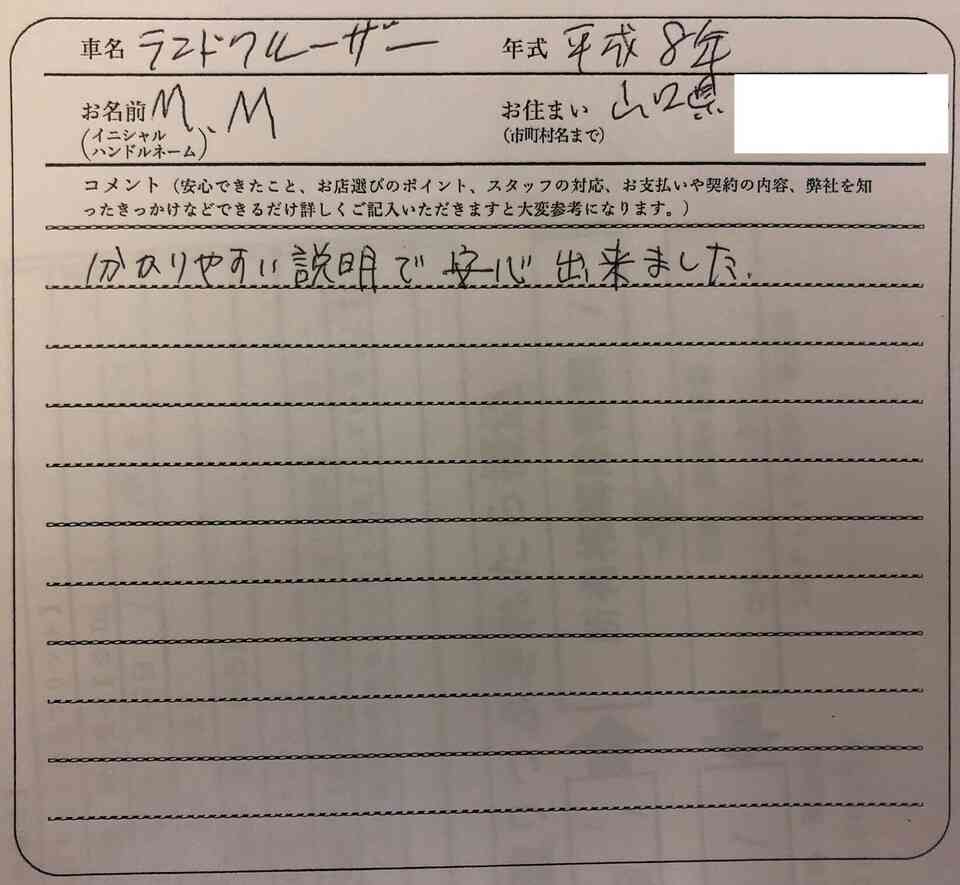 車名 ランドクルーザー 年式 平成8年
お名前 M.M お住まい 山口県
(イニシャル ハンドルネーム) (市町村名まで)
コメント（安心できたこと、お店選びのポイント、スタッフの対応、お支払いや契約の内容、弊社を知
ったきっかけなどできるだけ詳しくご記入いただきますと大変参考になります。）
分かりやすい説明で安心出来ました.